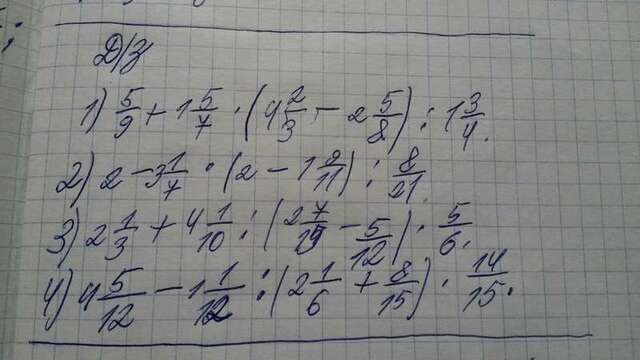 Д/З
1) 5/9 + 1 5/7 · (4 2/3 - 2 5/8) : 1 3/4.
2) 2 - 3 1/7 · (2 - 1 2/11) : 8/21
3) 2 1/3 + 4 1/10 : (2 7/15 - 5/12) · 5/6.
4) 4 5/12 - 1 1/12 : (2 1/6 + 8/15) · 14/15.